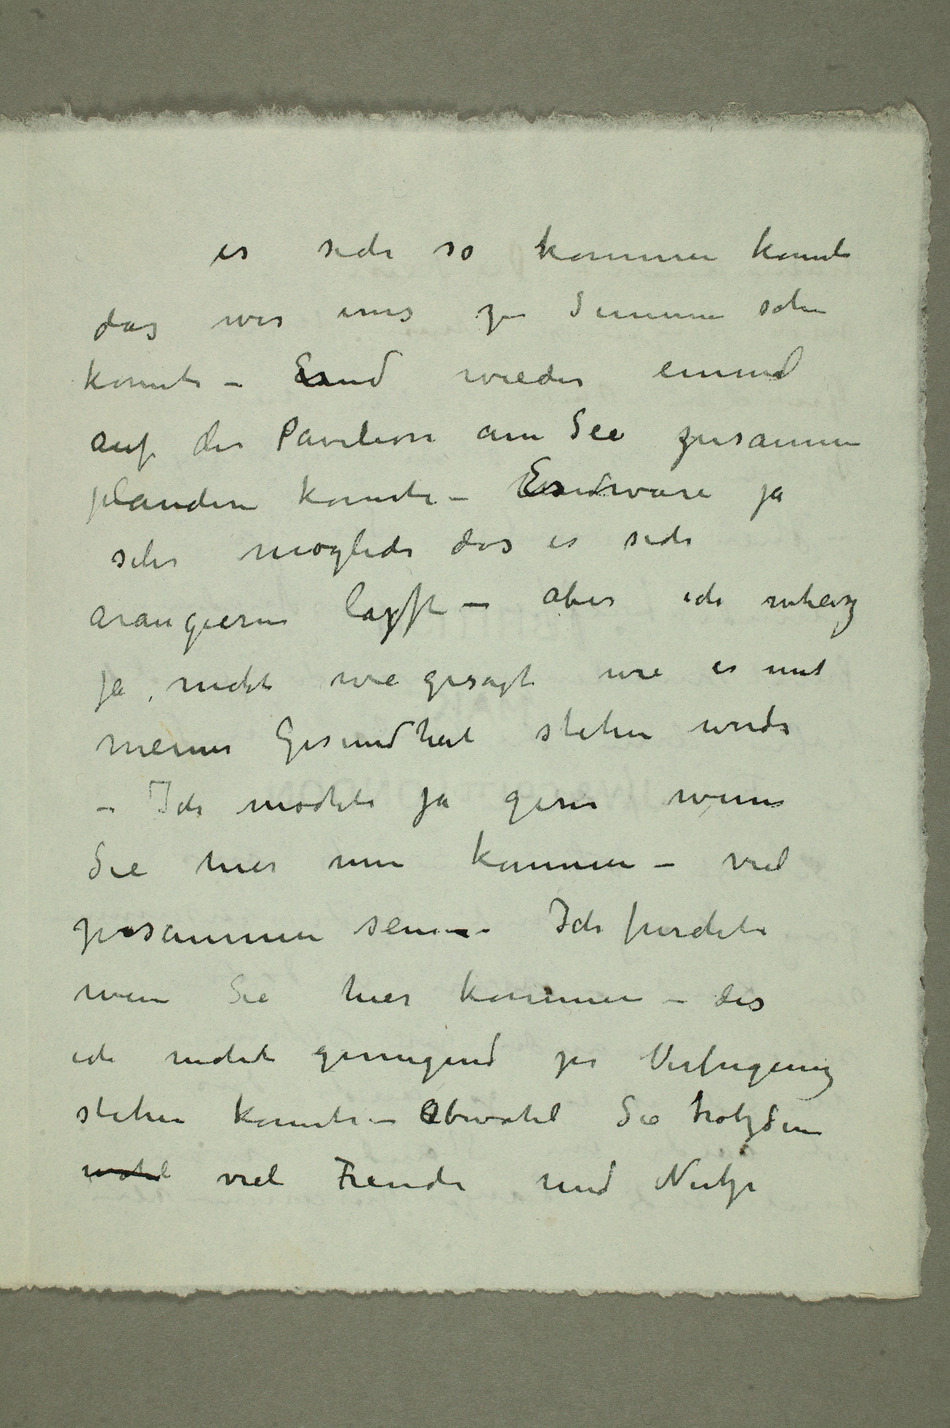 es sich so kommen konnte
das wir uns zu Sommer sehn
konnte – und wieder einmal
auf der Pavilion am See zusammen
plaudern konnte – Es wäre ja
sehr möglich das es sich
arangieren laszt – aber ich weisz
ja nicht wie gesagt wie es mit
meiner Gesundheit stehen wird
– Ich mochte ja gern wenn
Sie hier nun kommen – viel
zusammen sein – Ich furchte
wenn Sie hier kommen – das
ich nicht genugend zu Verfugung
stehen konnte – Obwohl Sie trotzdem
wohl viel Freude und Nutze